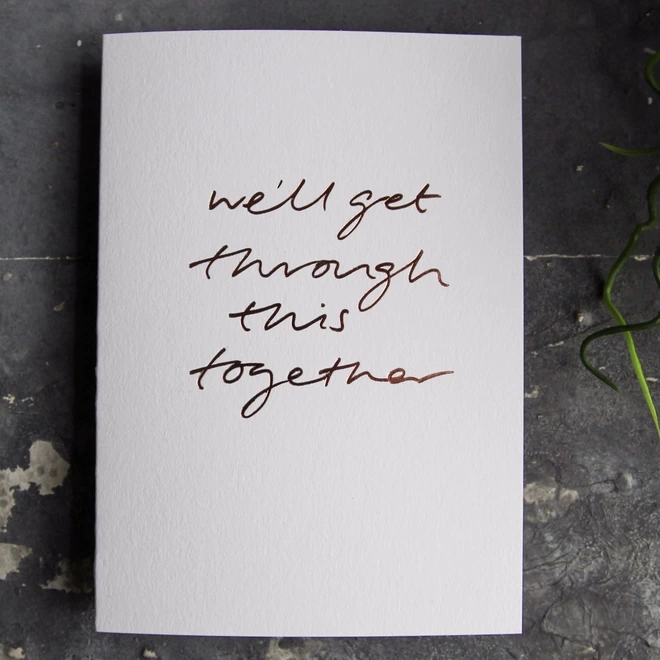 we'll get
through
this
together